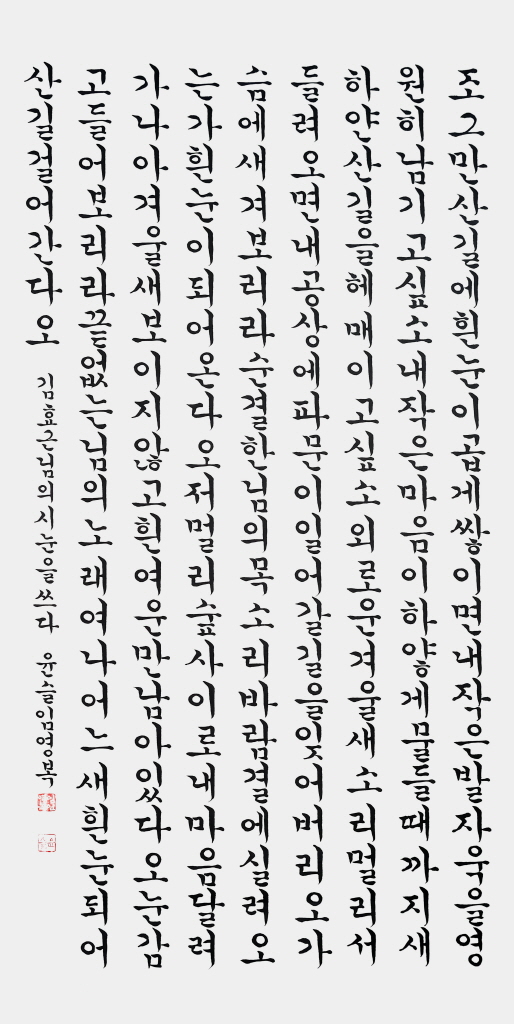 조그만산길에흰눈이곱게쌓이면내작은발자욱을영
원히남기고싶소내작은마음이하얗게물들때까지새
하얀산길을헤매이고싶소외로운겨울새소리멀리서
들려오면내공상에파문이일어갈길을잊어버리오가
슴에새겨보리라순결한님의목소리바람결에실려오
는가흰눈이되어온다오저멀리숲사이로내마음달려
가나아겨울새보이지않고흰여운만남아있다오눈감
고들어보리라끝없는님의노래여나어느새흰눈되어
산길걸어간다오
김효근님의시눈을쓰다 윤슬임영복